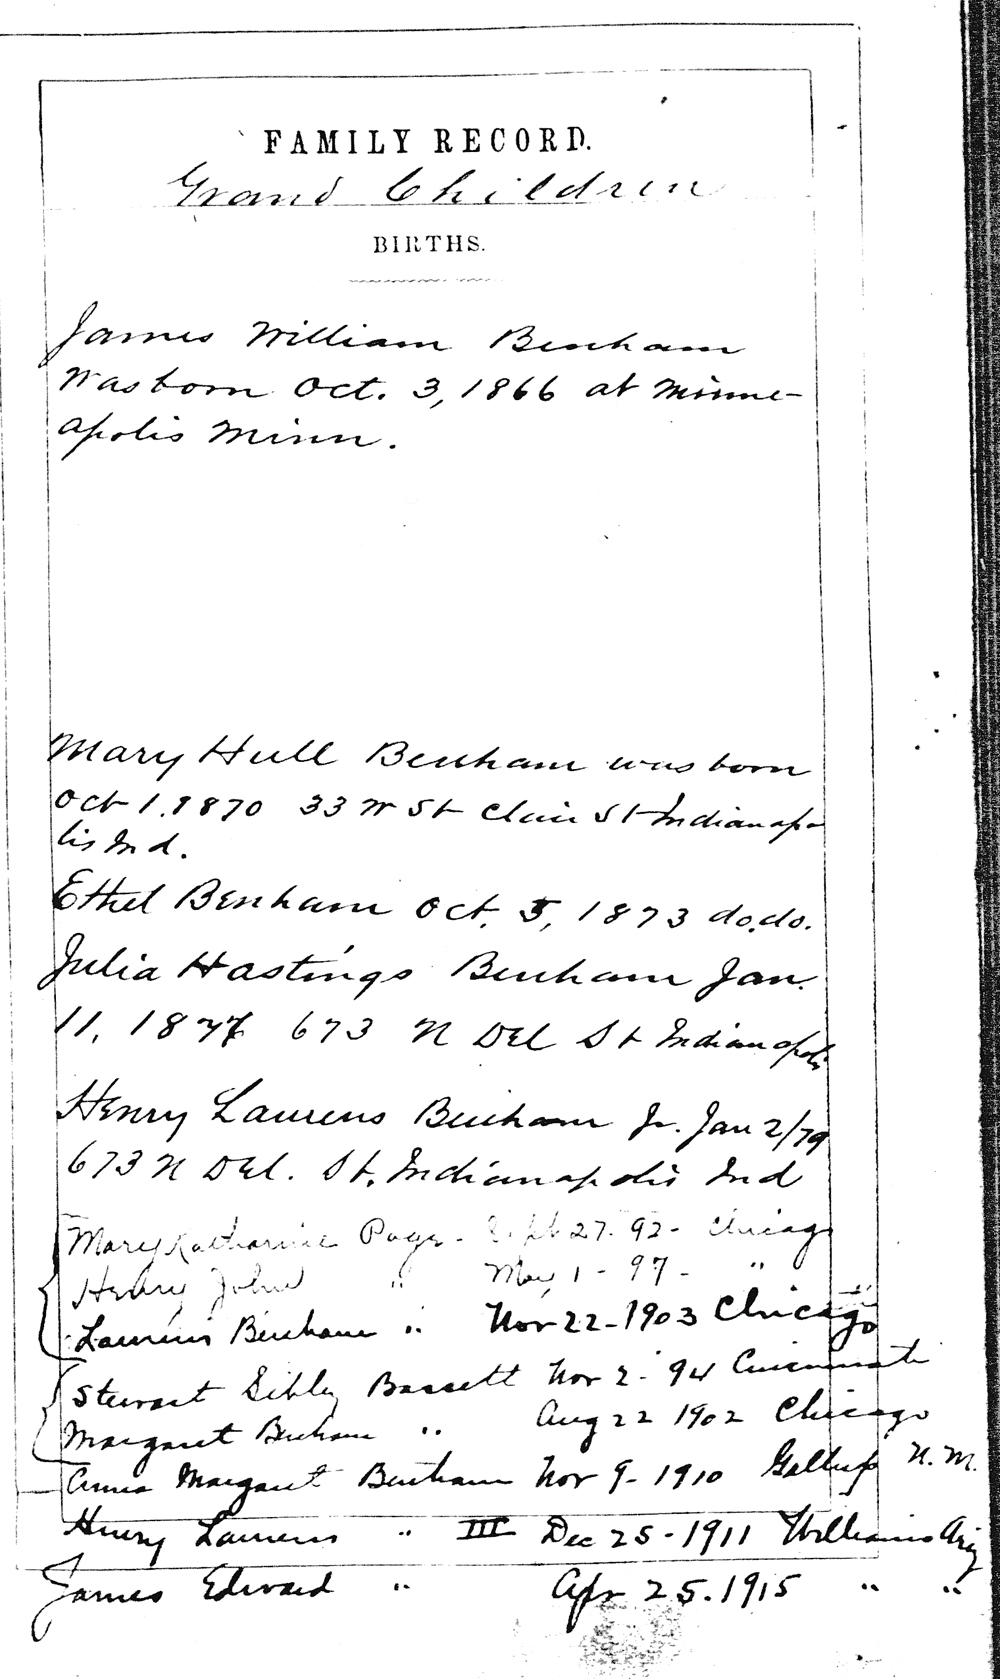 FAMILY RECORD.
Grand Children
BIRTHS.
James William Benham
Was born Oct. 3, 1866 at Minne-
apolis Minn.
Mary Hull Benham was born
Oct 1. 1870 33 W St Clair St Indianapo
lis Ind.
Ethel Benham Oct. 5, 1873 do.do.
Julia Hastings Benham Jan.
11, 1877 673 N Del St Indianapolis
Henry Laurens Benham Jr. Jan 2/79
673 N Del. St. Indianapolis Ind
Mary Katharine Page - Sept 27. 92 - Chicago
Henry John " May 1 - 97 - "
Laurens Benham " Nov 22 - 1903 Chicago
Stewart Sibley Bassett Nov 2 - 94 Cincinnati
Margaret Benham " Aug 22 1902 Chicago
Anna Margaret Benham Nov 9 - 1910 Gallup N.M.
Henry Laurens " III Dec 25 - 1911 Williams Ariz
James Edward " Apr 25. 1915 " "